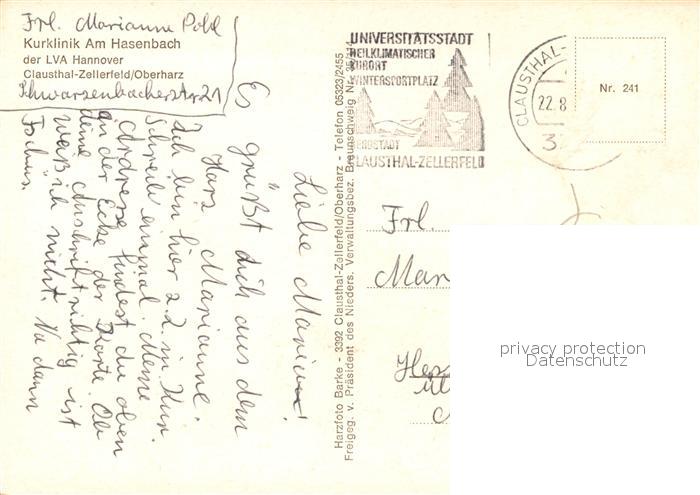 Frl. Marianne Pohl
Kurklinik Am Hasenbach
der LVA Hannover
Clausthal-Zellerfeld/Oberharz
Schwarzenbacherstr 21
Liebe Marion!
Es grüßt dich aus dem
Harz Marianne.
Ich bin hier z.Z. in Kur.
Schreib einmal. Meine
Adresse findest du oben
an der Ecke der Karte. Ob
deine Anschrift richtig ist
weiß ich nicht. Na dann
Tschüs.
Harzfoto Barke - 3392 Clausthal-Zellerfeld/Oberharz - Telefon 05323/2455
Freigeg. v. Präsident des Nieders. Verwaltungsbez. Braunschweig Nr.
UNIVERSITÄTSSTADT
HEILKLIMATISCHER
KURORT
WINTERSPORTPLATZ
BERGSTADT
CLAUSTHAL-ZELLERFELD
CLAUSTHAL-
22.8
3
Nr. 241
Frl.
Mar
privacy protection
Datenschutz